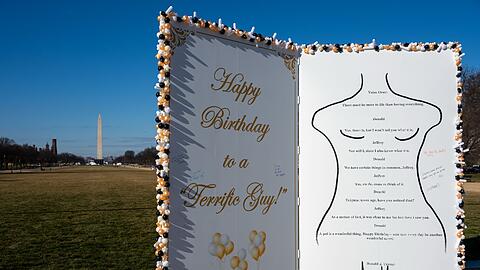 Happy
Birthday
to a
"Terrific Guy!"
Voice Over:
There must be more to life than having everything.
Donald
Yes, there is, but I won't tell you what it is.
Jeffrey
Nor will I, since I also know what it is.
Donald
We have certain things in common, Jeffrey.
Jeffrey
Yes, we do, come to think of it.
Donald
Enigmas never age, have you noticed that?
Jeffrey
As a matter of fact, it was clear to me the last time I saw you.
Donald
A pal is a wonderful thing. Happy Birthday – and may every day be another
wonderful secret.
Donald J. Trump